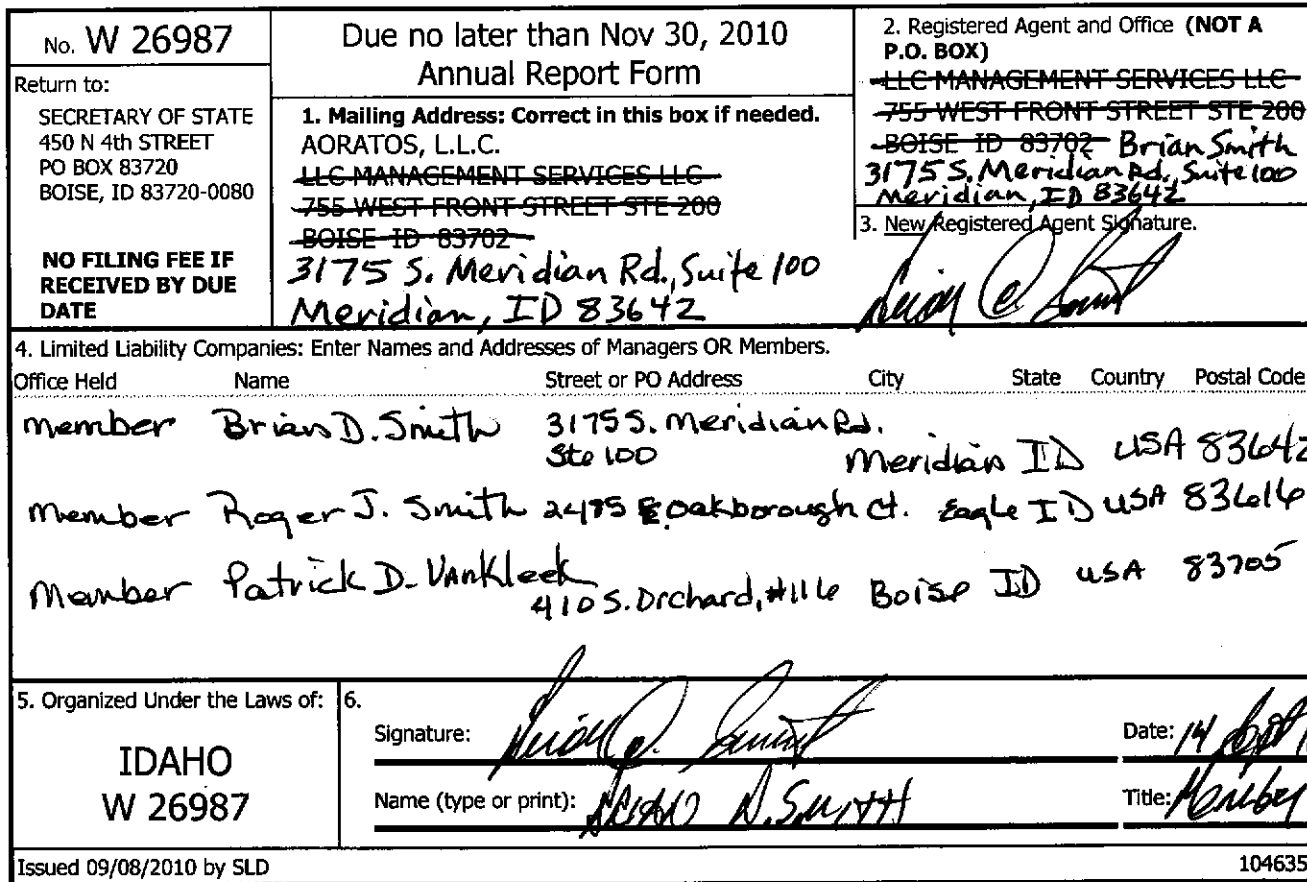 No. W 26987
Return to:
SECRETARY OF STATE
450 N 4th STREET
PO BOX 83720
BOISE, ID 83720-0080
NO FILING FEE IF
RECEIVED BY DUE
DATE
Due no later than Nov 30, 2010
Annual Report Form
1. Mailing Address: Correct in this box if needed.
AORATOS, L.L.C.
LLC MANAGEMENT SERVICES LLC
755 WEST FRONT STREET STE 200
BOISE ID 83702
3175 S. Meridian Rd., Suite 100
Meridian, ID 83642
2. Registered Agent and Office (NOT A
P.O. BOX)
LLC MANAGEMENT SERVICES LLC
755 WEST FRONT STREET STE 200
BOISE ID 83702 Brian Smith
3175 S. Meridian Rd., Suite 100
Meridian, ID 83642
3. New Registered Agent Signature.
4. Limited Liability Companies: Enter Names and Addresses of Managers OR Members.
Office Held Name Street or PO Address City State Country Postal Code
member Brian D. Smith 3175 S. Meridian Rd.
Ste 100 Meridian ID USA 83642
member Roger J. Smith E Oakborough Ct. Eagle ID USA 83616
Member Patrick D. VanKleek
410 S. Orchard, #116 Boise ID USA 83705
5. Organized Under the Laws of:
IDAHO
W 26987
6.
Signature:
Date: 14 Sept
Name (type or print): D. SMITH
Title: Member
Issued 09/08/2010 by SLD
104635